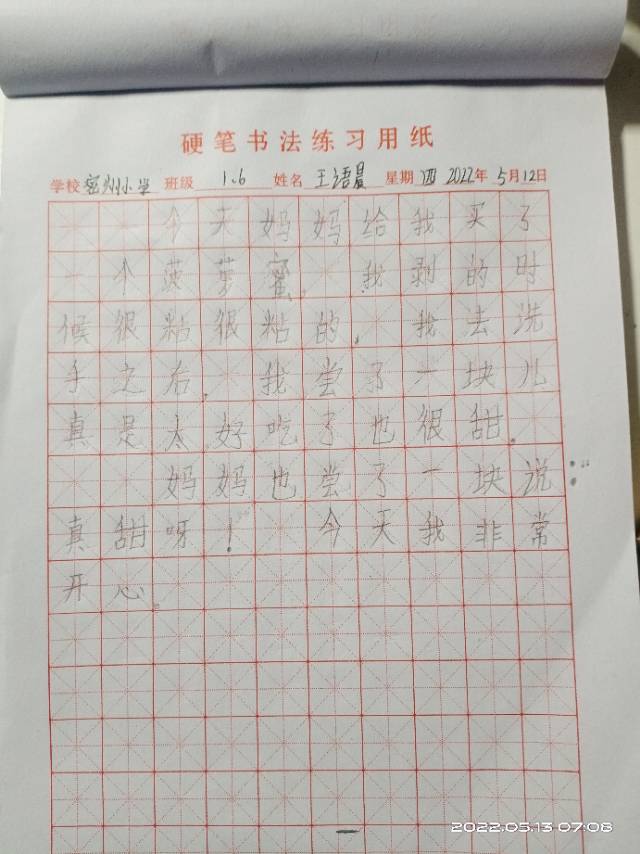 硬笔书法练习用纸
学校 密州小学 班级 1.6 姓名 王语晨 星期 四 2022年 5月12日
今天妈妈给我买了
一个菠萝蜜，我剥的时
候很粘很粘的，我去洗
手之后，我尝了一块儿
真是太好吃了也很甜。
妈妈也尝了一块说：“
真甜呀！”今天我非常
开心。
2022.05.13 07:08